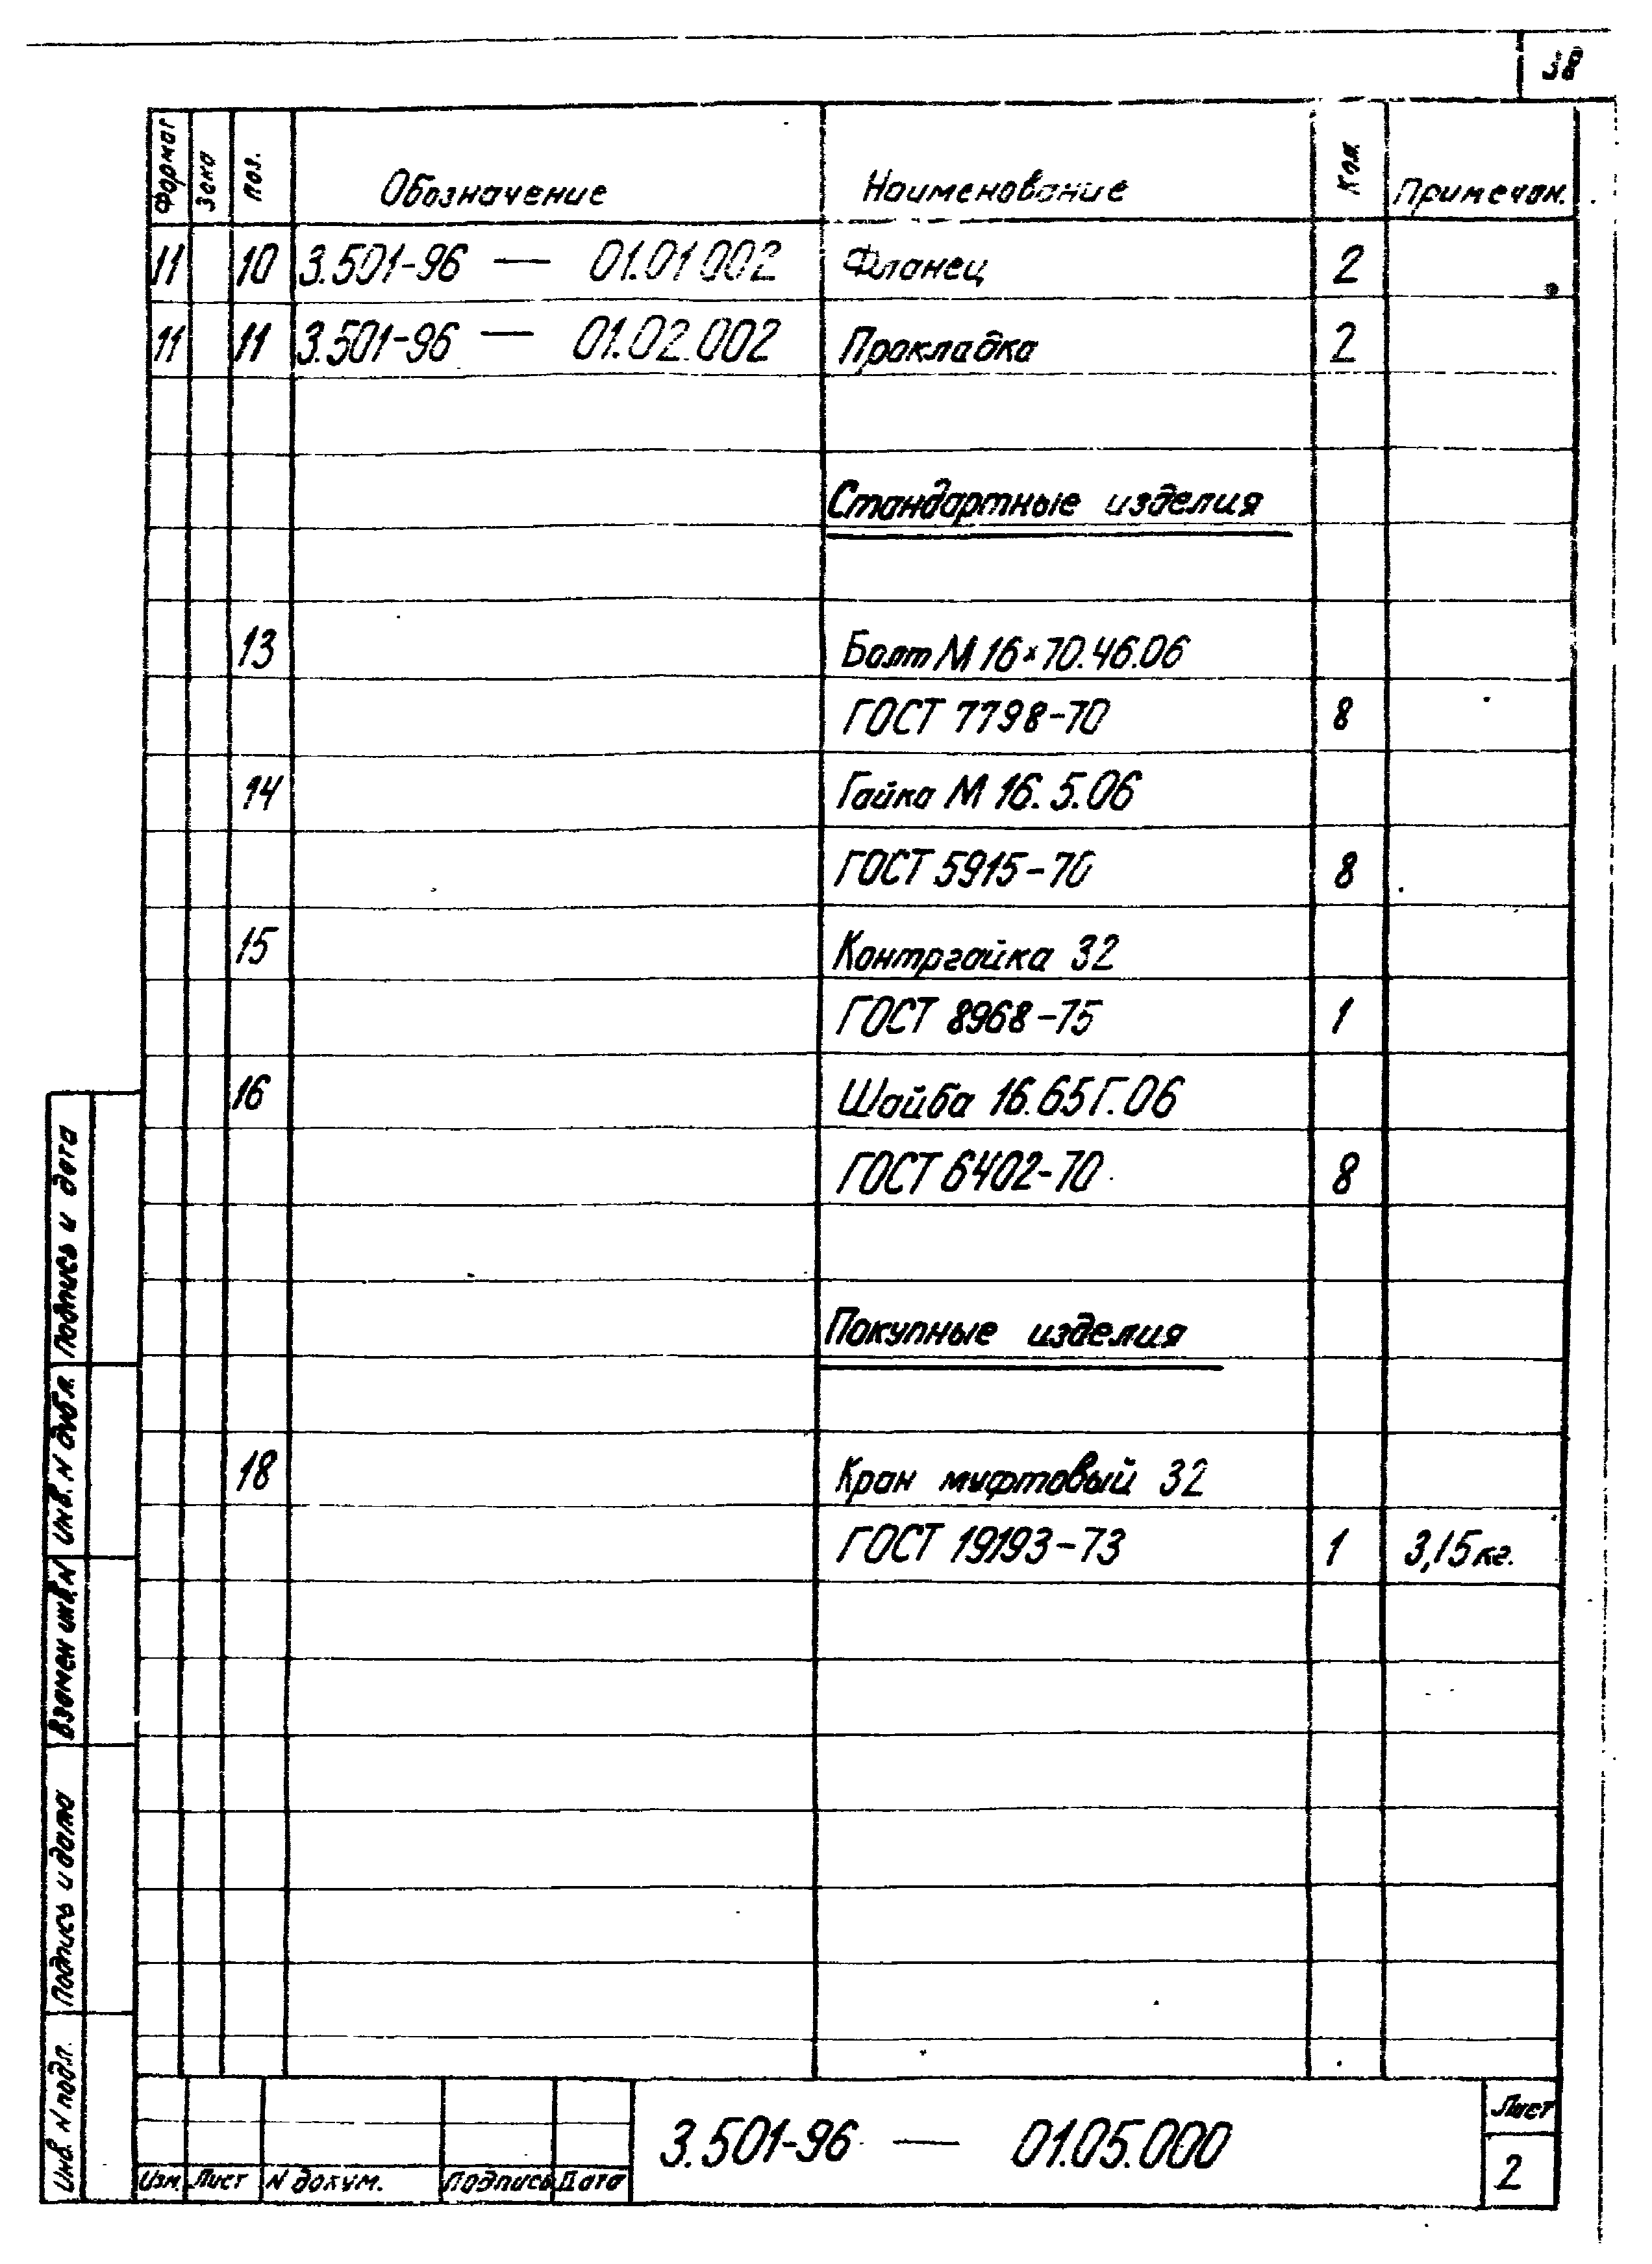 38
Формат Зона Поз. Обозначение Наименование Кол. Примечан.
11 10 3.501-96 — 01.01.002 Фланец 2
11 11 3.501-96 — 01.02.002 Прокладка 2
Стандартные изделия
13 Болт М 16×70.46.06
ГОСТ 7798-70 8
14 Гайка М 16.5.06
ГОСТ 5915-70 8
15 Контргайка 32
ГОСТ 8968-75 1
16 Шайба 16.65Г.06
ГОСТ 6402-70 8
Покупные изделия
18 Кран муфтовый 32
ГОСТ 19193-73 1 3,15кг.
Подпись и дата
Инв. N дубл.
Взамен инв. N
Подпись и дата
Инв. N подл.
Изм. Лист N докум. Подпись Дата
3.501-96 — 01.05.000
Лист
2